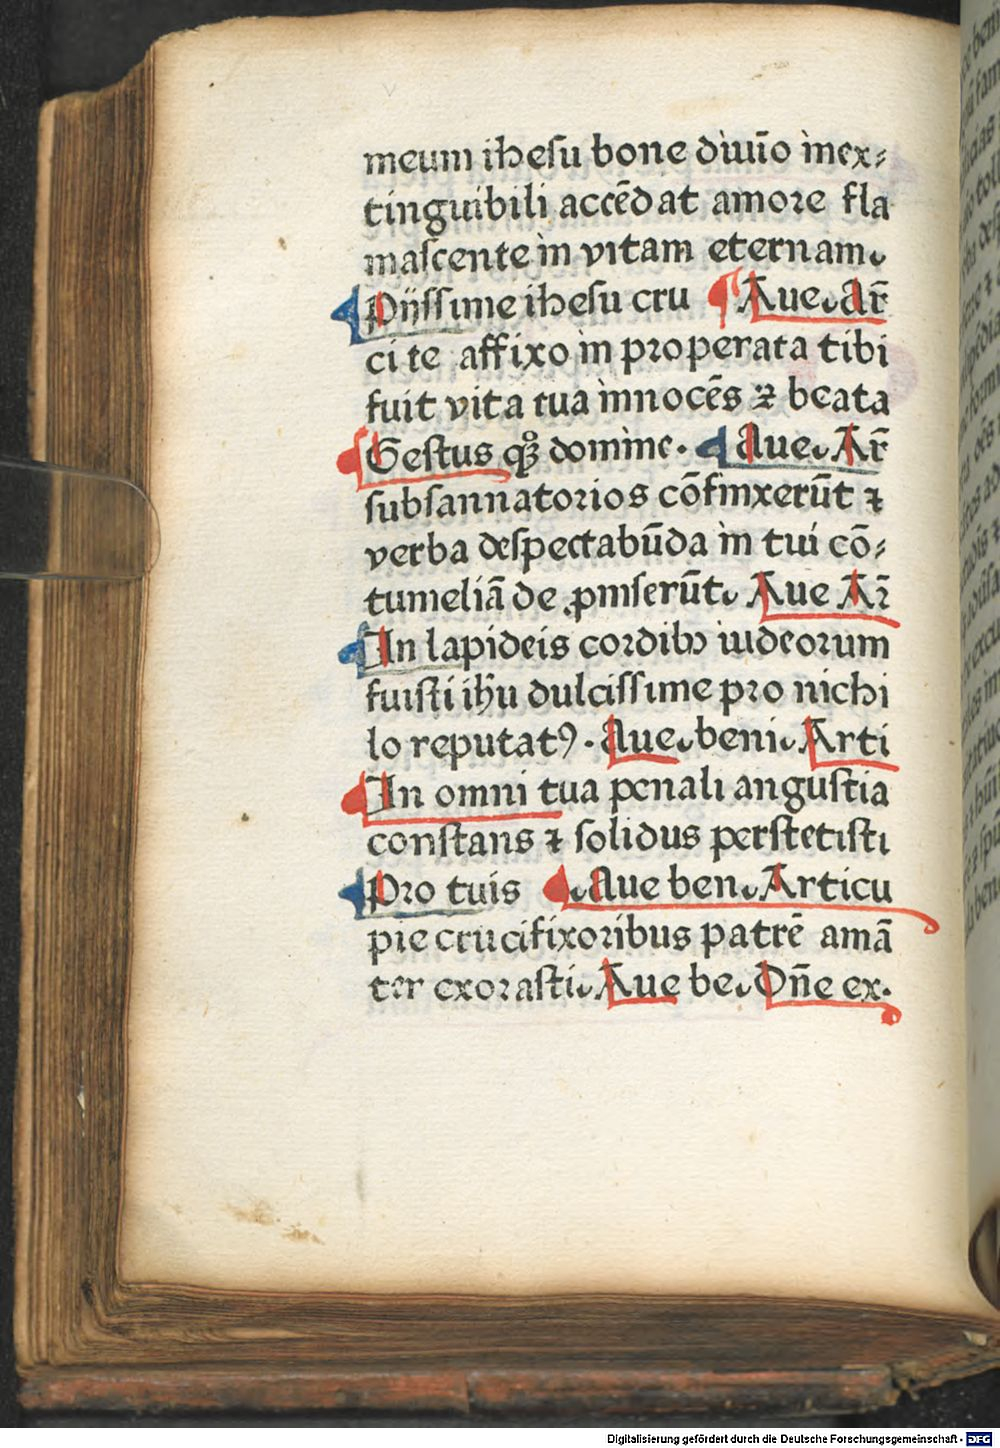 meum ihesu bone diuīo inex⸗
tinguibili accēdat amore fla
mascente in vitam eternam.
Pijssime ihesu cru ¶ Aue. Ar̄
ci te affixo in properata tibi
fuit vita tua innocēs ⁊ beata
Gestus qꝫ domine. ¶ Aue. Ar̄
subsannatorios cōfinxerūt ⁊
verba despectabūda in tui cō⸗
tumeliā de ꝓmserūt. Aue Ar̄
In lapideis cordibꝫ iudeorum
fuisti ihū dulcissime pro nichi
lo reputatꝰ. Aue. beni. Arti
In omni tua penali angustia
constans ⁊ solidus perstetisti
Pro tuis ¶ Aue ben. Articu
pie crucifixoribus patrē amā
ter exorasti. Aue be. Dn̄e ex.
Digitalisierung gefördert durch die Deutsche Forschungsgemeinschaft - DFG